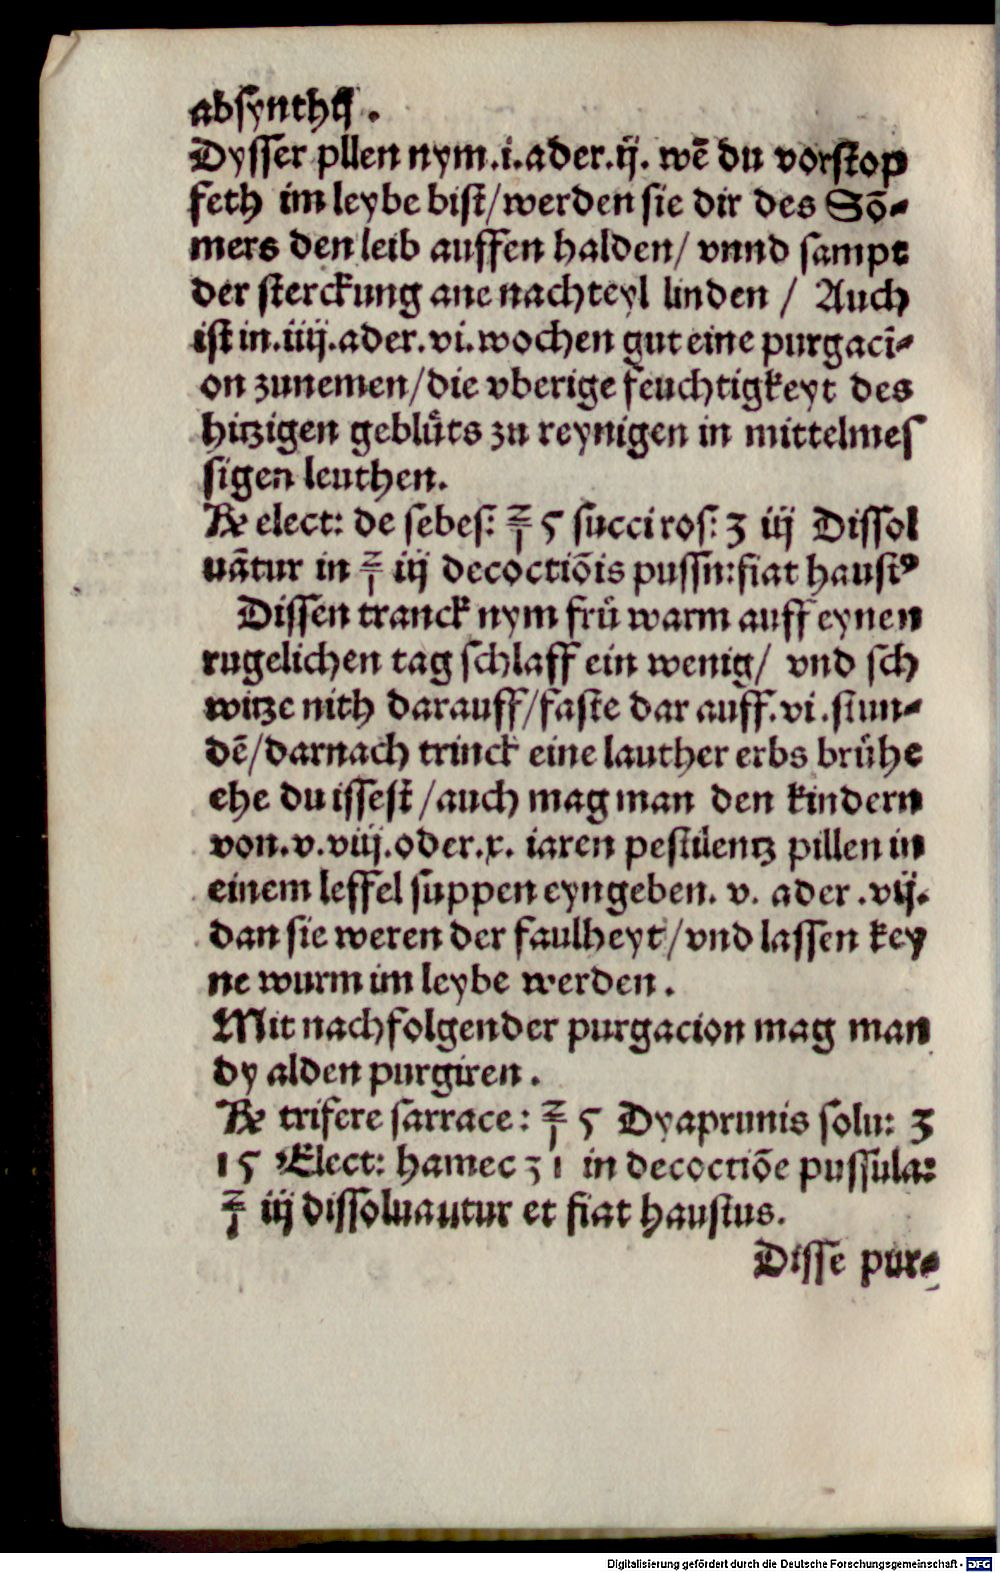 absynthij.
Dysser pllen nym.i.ader.ij. wē du vorstop
feth im leybe bist/werden sie dir des Sō⸗
mers den leib auffen halden/ vnnd sampt
der sterckung ane nachteyl linden / Auch
ist in.iiij.ader.vi.wochen gut eine purgaci⸗
on zunemen/die vberige feuchtigkeyt des
hitzigen geblüts zu reynigen in mittelmes
sigen leuthen.
℞ elect: de sebes: ℥ 5 succi ros: ʒ iij Dissol
uātur in ℥ iij decoctiōis pussu:fiat haustꝰ
Dissen tranck nym frü warm auff eynen
rugelichen tag schlaff ein wenig/ vnd sch
witze nith darauff/faste dar auff.vi.stun⸗
dē/darnach trinck eine lauther erbs brühe
ehe du issest/auch mag man den kindern
von.v.viij.oder.x. iaren pestilentz pillen in
einem leffel suppen eyngeben. v. ader .vij.
dan sie weren der faulheyt/vnd lassen key
ne wurm im leybe werden.
Mit nachfolgender purgacion mag man
dy alden purgiren.
℞ trifere sarrace: ℥ 5 Dyaprunis solu: ʒ
15 Elect: hamec ʒ1 in decoctiōe pussula:
℥ iij dissoluautur et fiat haustus.
Disse pur⸗
Digitalisierung gefördert durch die Deutsche Forschungsgemeinschaft - DFG